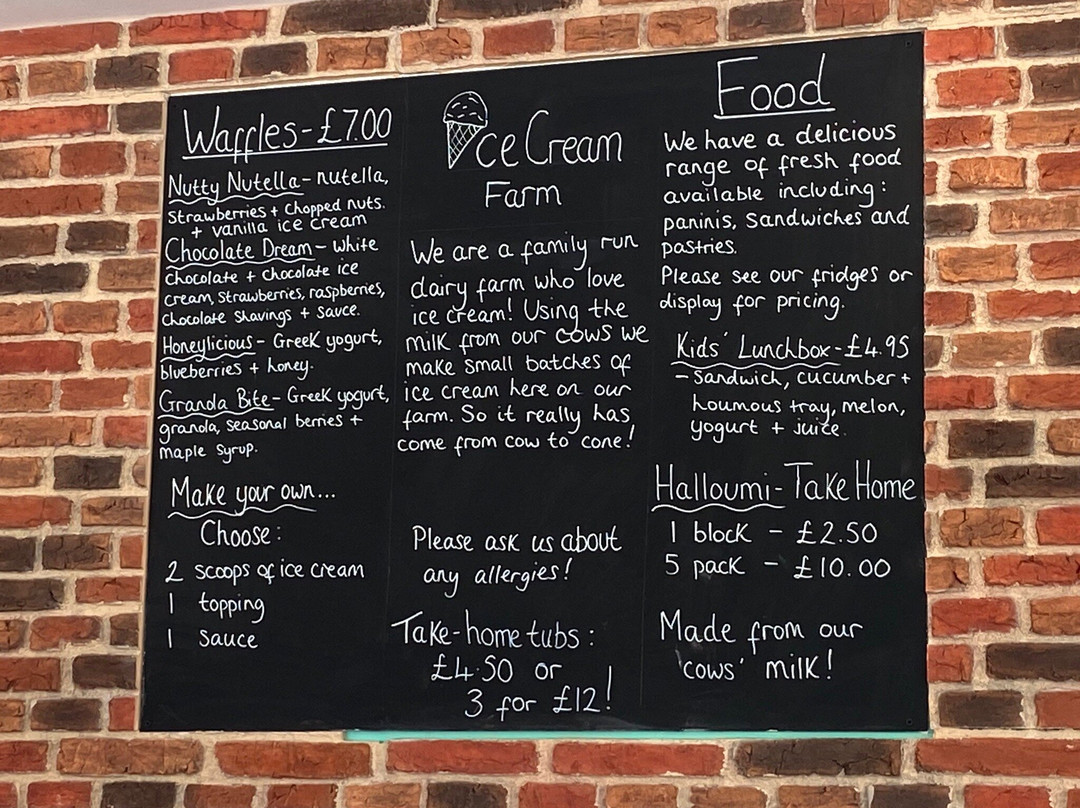 Waffles - £7.00
Nutty Nutella - nutella,
Strawberries + Chopped nuts.
+ vanilla ice cream
Chocolate Dream - white
Chocolate + Chocolate ice
cream, strawberries, raspberries,
Chocolate Shavings + sauce.
Honeylicious - Greek yogurt,
blueberries + honey.
Granola Bite - Greek yogurt,
granola, seasonal berries +
maple syrup.
Make your own...
Choose:
2 scoops of ice cream
1 topping
1 sauce
ce Cream
Farm
We are a family run
dairy farm who love
ice cream! Using the
milk from our cows we
make small batches of
ice cream here on our
farm. So it really has
come from cow to cone!
Please ask us about
any allergies!
Take-home tubs:
£4.50 or
3 for £12!
Food
We have a delicious
range of fresh food
available including:
paninis, Sandwiches and
pastries.
Please see our fridges or
display for pricing.
Kids' Lunchbox - £4.95
- Sandwich, cucumber +
houmous tray, melon,
yogurt + juice.
Halloumi - Take Home
1 block - £2.50
5 pack - £10.00
Made from our
cows' milk!